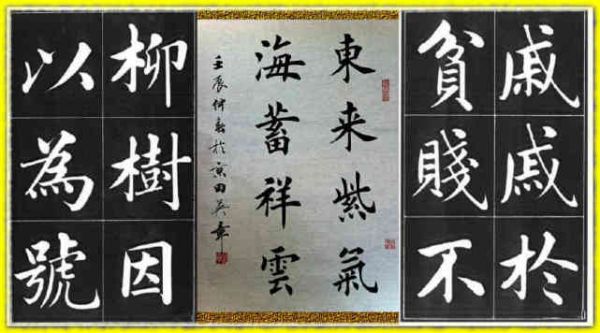 戚戚於
貧賤不
東来紫氣
海蓄祥雲
壬辰仲春於京田英章
柳樹因
以為號